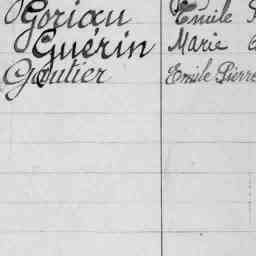 Goriau Emile
Guérin Marie
Gautier Emile Pierre